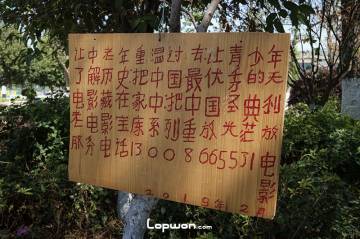 让中老年重温过去让青少年
了解历史把中国最优秀的无
电影藏在家中把中国经典利
老电影宝库系列重放光芒放
服务电话13008665531电影
2019年2月
Lopwon.com